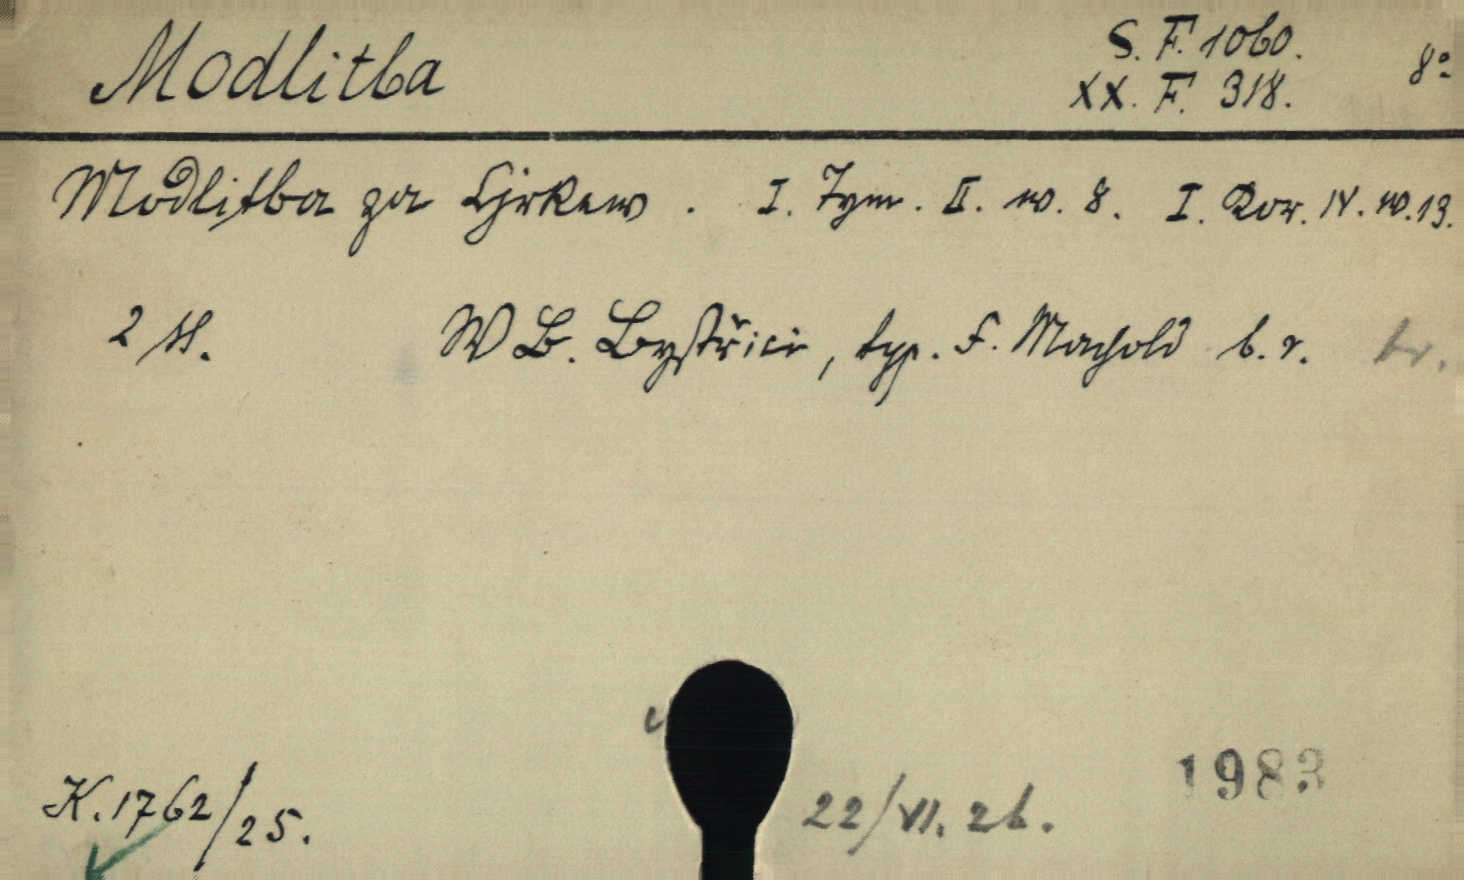 Modlitba
S. F. 1060.
XX. F. 318.
8°
Modlitba za Cjrkew. I. Tym. II. w. 8. I. Kor. 14. w. 13.
2 ll. W B. Bystřici, typ. F. Machold b. r. br.
K. 1762/25.
22/VI. 26.
1983